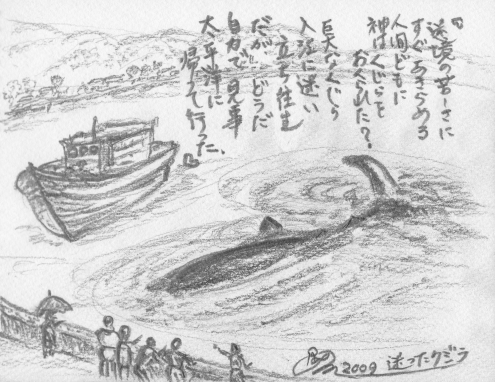 『逆境の苦しさに
すぐあきらめる
人間どもに
神はくじらを
おくられた?
巨大なくじら
入江に迷い
立ち往生
だが どうだ
自力で見事
太平洋に
帰って行った。
2009 迷ったクジラ